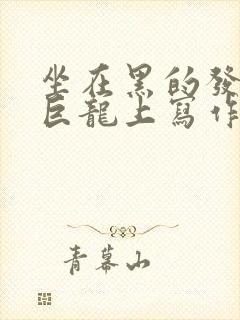 坐在黑的發
巨龍上寫作
青幕山